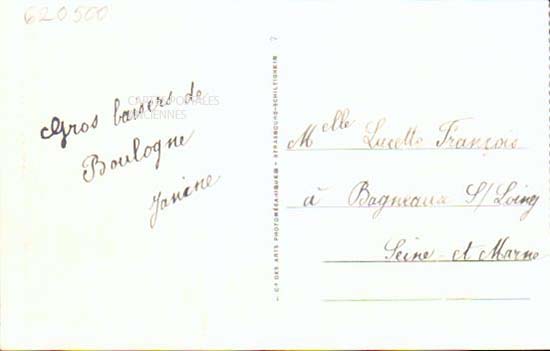 620500
Gros baisers de
Boulogne
Janine
CARTES POSTALES
ANCIENNES
CIE DES ARTS PHOTOMÉCANIQUES - STRASBOURG-SCHILTIGHEIM
Melle Lucette François
à Bagneaux S/Loing
Seine-et Marne